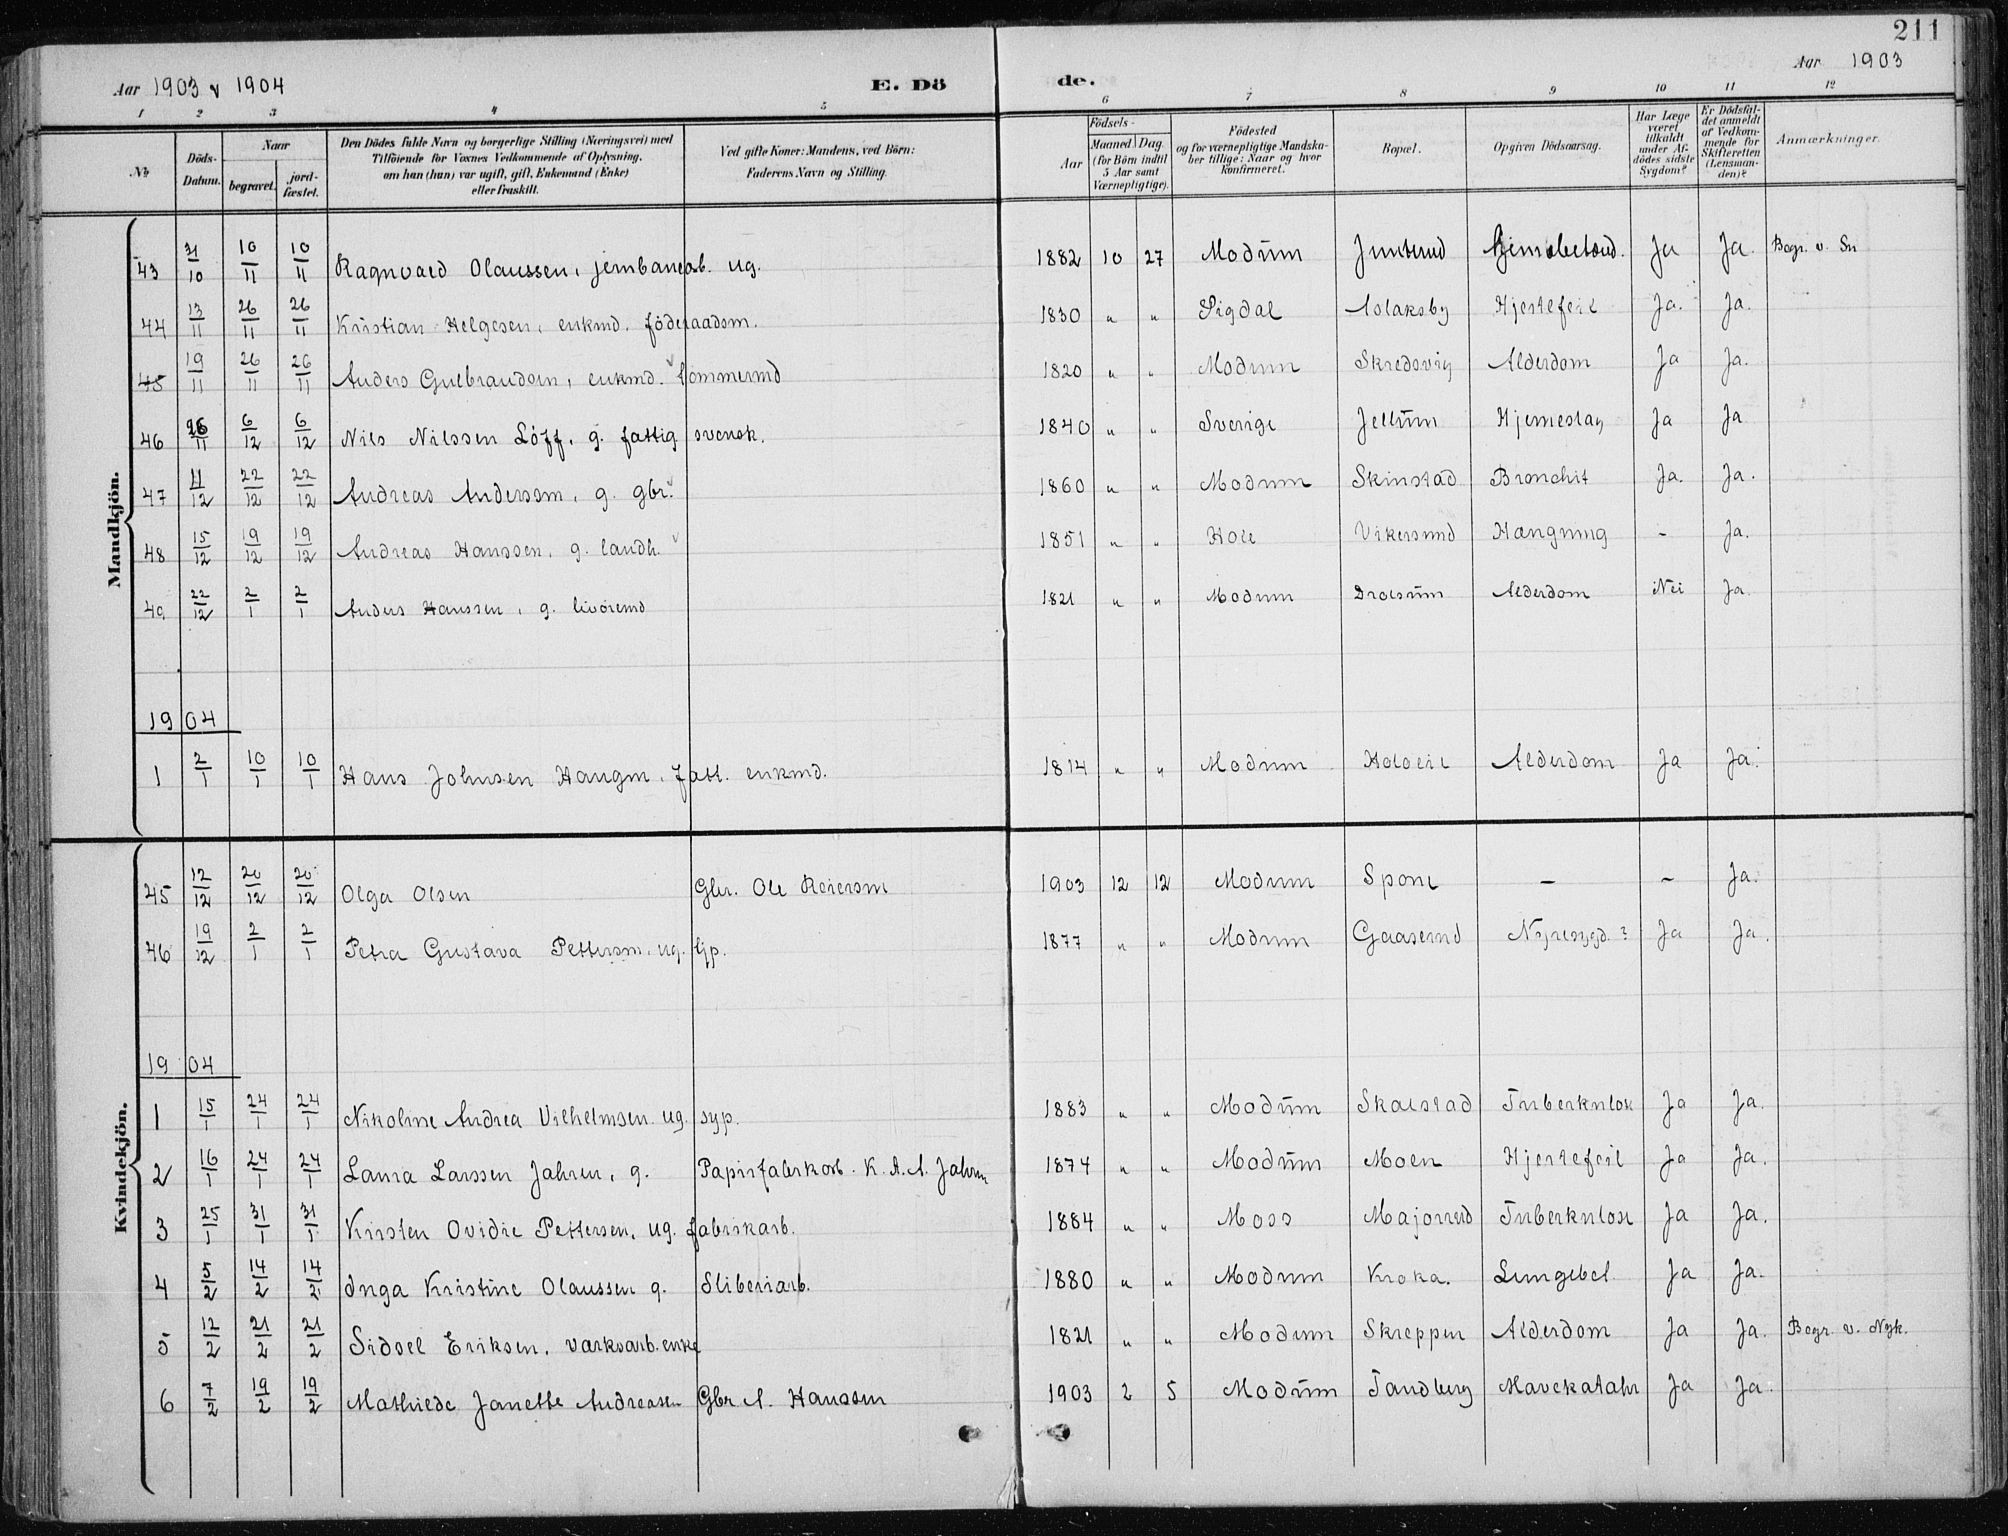 211
Aar 1903 & 1904 E. Dö de. Aar 1903
1 2 3 4 5 6 7 8 9 10 11 12
No. Döds-Datum. Naar begravet. jordfæstet. Den Dödes fulde Navn og borgerlige Stilling (Næringsvei) med Tilföiende for Voxnes Vedkommende af Oplysning, om han (hun) var ugift, gift, Enkemand (Enke) eller fraskilt. Ved gifte Koner: Mandens, ved Börn: Faderens Navn og Stilling. Födsels- Aar Maaned Dag. (for Börn indtil 5 Aar samt Værnepligtige). Födested og for værnepligtige Mandskaber tillige: Naar og hvor konfirmeret. Bopæl. Opgiven Dödsaarsag. Har Læge været tilkaldt under Afdödes sidste Sygdom? Er Dödsfaldet anmeldt af Vedkommende for Skifteretten (Lensmanden)? Anmærkninger.
Mandkjön.
43 31/10 10/11 10/11 Ragnvald Olaussen, jernbanearb. ug. 1882 10 27 Modum Ja Ja. Begr. v. Sn
44 13/11 26/11 26/11 Kristian Helgesen, enkmd. föderaadsm. 1830 " " Sigdal Aslaksby Hjertefeil Ja. Ja.
45 19/11 26/11 26/11 Anders Gulbrandsen, enkmd. tömmermd 1820 " " Modum Skredsvig Alderdom Ja Ja.
46 26/11 6/12 6/12 Nils Nilssen Löff, g. fattig svensk. 1840 " " Sverige Jellum Hjerneslag Ja Ja
47 11/12 22/12 22/12 Andreas Anderssen, g. gbr. 1860 " " Modum Skinstad Bronchit Ja. Ja.
48 15/12 19/12 19/12 Andreas Hanssen, g. landh. 1851 " " Hole Vikersund Hængning - Ja.
49 22/12 2/1 2/1 Anders Hanssen, g. livöremd 1821 " " Modum Drolsum Alderdom Nei Ja.
1904
1 2/1 10/1 10/1 Hans Johnsen Haugen, fatt. enkmd. 1814 " " Modum Alderdom Ja Ja.
Kvindekjön.
45 12/12 20/12 20/12 Olga Olsen Gbr. Ole Reiersen 1903 12 12 Modum Spone - - Ja.
46 19/12 2/1 2/1 Petra Gustava Pettersen, ug. tjp. 1877 " " Modum Gaaserud Nyresygd.? Ja Ja.
1904
1 15/1 24/1 24/1 Nikoline Andrea Vilhelmsen ug. syp. 1883 " " Modum Skalstad Tuberkulose Ja Ja.
2 16/1 24/1 24/1 Laura Larssen Jahren, g. Papirfabrkarb. K. A. A. Jahren 1874 " " Modum Moen Hjertefeil Ja Ja.
3 25/1 31/1 31/1 Kirsten Ovidie Pettersen, ug. fabrikarb. 1884 " " Moss Majorrud Tuberkulose Ja Ja.
4 5/2 14/2 14/2 Inga Kristine Olaussen g. Sliberiarb. 1880 " " Modum Kroka. Lungebet. Ja Ja.
5 12/2 21/2 21/2 Sidsel Eriksen, værksarb. enke 1821 " " Modum Skreppen Alderdom Ja Ja. Begr. v. Nyk.
6 7/2 19/2 19/2 Mathilde Janette Andreasen Gbr A. Hanssen 1903 2 5 Modum Tandberg Mavekatahr Ja Ja.